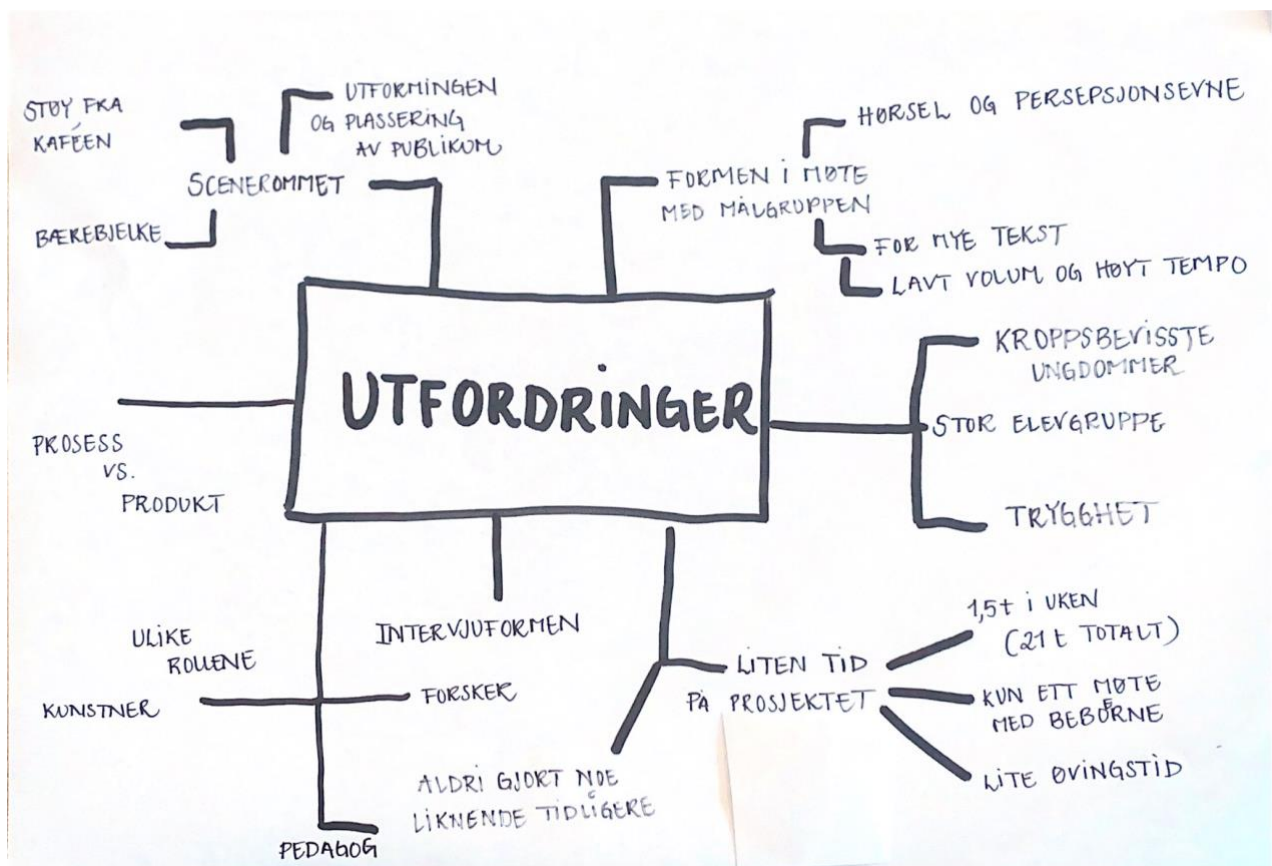 STØY FRA
KAFÉEN
UTFORMINGEN
OG PLASSERING
AV PUBLIKUM
SCENEROMMET
BÆREBJELKE
HØRSEL OG PERSEPSJONSEVNE
FORMEN I MØTE
MED MÅLGRUPPEN
FOR MYE TEKST
LAVT VOLUM OG HØYT TEMPO
UTFORDRINGER
KROPPSBEVISSTE
UNGDOMMER
STOR ELEVGRUPPE
TRYGGHET
PROSESS
VS.
PRODUKT
ULIKE
ROLLENE
KUNSTNER
FORSKER
PEDAGOG
INTERVJUFORMEN
ALDRI GJORT NOE
LIKNENDE TIDLIGERE
LITEN TID
PÅ PROSJEKTET
1,5t i UKEN
(21 t TOTALT)
KUN ETT MØTE
MED BEBOERNE
LITE ØVINGSTID